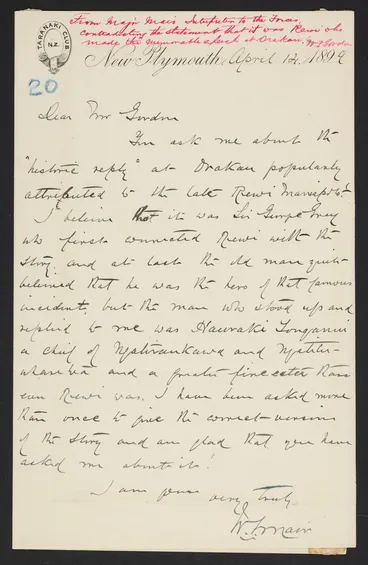 From Major Mair Interpreter to the Forces,
contradicting the statement that it was Rewi who
made the memorable speech at Orakau. W.F. Gordon
TARANAKI CLUB
N.Z.
New Plymouth, April 12, 1899
20
Dear Mr Gordon
You ask me about the
"historic reply" at Orakau popularly
attributed to the late Rewi Maniapoto
I believe that it was Sir George Grey
who first connected Rewi with the
Story, and at last the old man quite
believed that he was the hero of that famous
incident, but the man who stood up and
replied to me was Hauraki Tonganui
a chief of
and a greater fire eater than
even Rewi was. I have been asked more
than once to give the correct version
of the Story and am glad that you have
asked me about it.
I am yours very truly
W. G. Mair